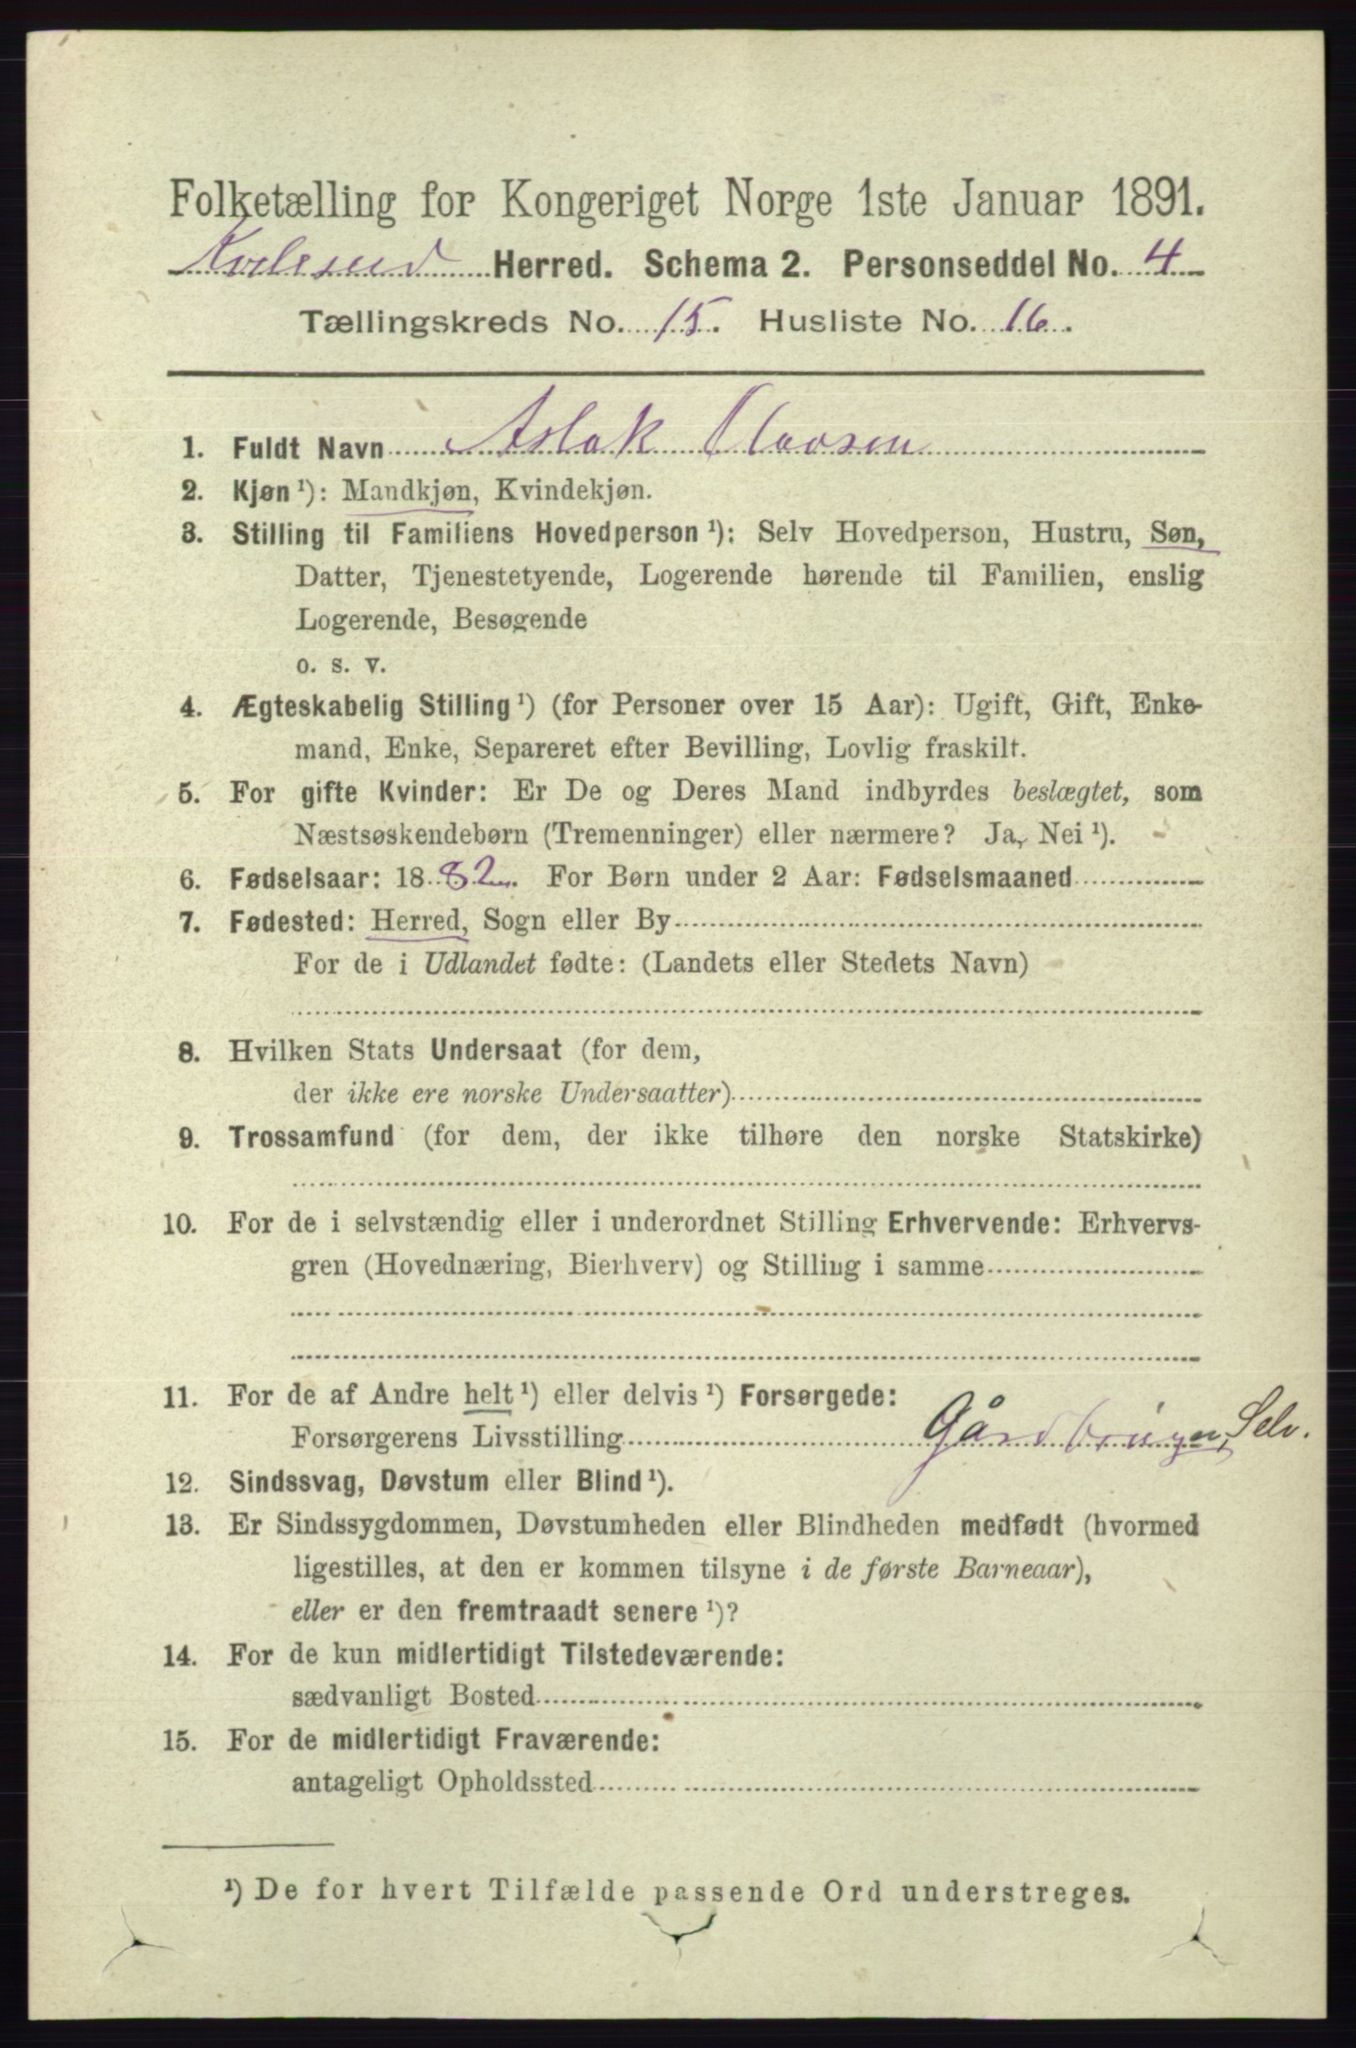 Folketælling for Kongeriget Norge 1ste Januar 1891.
Kvalsund Herred. Schema 2. Personseddel No. 4
Tællingskreds No. 15. Husliste No. 16.
1. Fuldt Navn Aslak Olavsen
2. Kjøn ¹): Mandkjøn, Kvindekjøn.
3. Stilling til Familiens Hovedperson ¹): Selv Hovedperson, Hustru, Søn,
Datter, Tjenestetyende, Logerende hørende til Familien, enslig
Logerende, Besøgende
o. s. v.
4. Ægteskabelig Stilling ¹) (for Personer over 15 Aar): Ugift, Gift, Enke-
mand, Enke, Separeret efter Bevilling, Lovlig fraskilt.
5. For gifte Kvinder: Er De og Deres Mand indbyrdes beslægtet, som
Næstsøskendebørn (Tremenninger) eller nærmere? Ja, Nei ¹).
6. Fødselsaar: 1882. For Børn under 2 Aar: Fødselsmaaned
7. Fødested: Herred, Sogn eller By
For de i Udlandet fødte: (Landets eller Stedets Navn)
8. Hvilken Stats Undersaat (for dem,
der ikke ere norske Undersaatter)
9. Trossamfund (for dem, der ikke tilhøre den norske Statskirke)
10. For de i selvstændig eller i underordnet Stilling Erhvervende: Erhvervs-
gren (Hovednæring, Bierhverv) og Stilling i samme
11. For de af Andre helt ¹) eller delvis ¹) Forsørgede:
Forsørgerens Livsstilling Gårdbruger, Selv.
12. Sindssvag, Døvstum eller Blind ¹).
13. Er Sindssygdommen, Døvstumheden eller Blindheden medfødt (hvormed
ligestilles, at den er kommen tilsyne i de første Barneaar),
eller er den fremtraadt senere ¹)?
14. For de kun midlertidigt Tilstedeværende:
sædvanligt Bosted
15. For de midlertidigt Fraværende:
antageligt Opholdssted
¹) De for hvert Tilfælde passende Ord understreges.